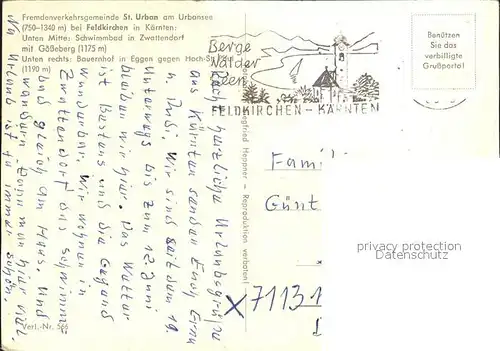 Fremdenverkehrsgemeinde St. Urban am Urbansee
(750–1340 m) bei Feldkirchen in Kärnten:
Unten Mitte: Schwimmbad in Zwattendorf
mit Gößeberg (1175 m)
Unten rechts: Bauernhof in Eggen gegen Hoch-St.
(1190 m)
Berge
Wälder
Seen
FELDKIRCHEN - KÄRNTEN
Benützen
Sie das
verbilligte
Grußporto!
Recht herzliche Urlaubsgrüße
aus Kärnten senden Euch Erna
u. Rudi. Wir sind seit dem 19.
Unterwegs bis zum 12. Juni
bleiben wir hier. Das Wetter
ist Bestens und die Gegend
wunderbar. Wir wohnen in
Zwattendorf das Schwimm-
bad gleich am Haus. Und
wandern kann man hier viel.
Na Urlaub ist ja immer schön.
Siegfried Heppner — Reproduktion verboten!
Famil
Günt
x 7113 1
privacy protection
Datenschutz
Verl.-Nr. 566